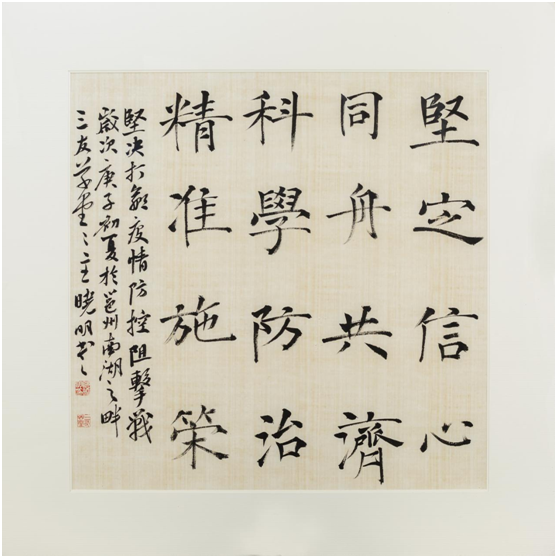 堅定信心
同舟共濟
科學防治
精准施策
堅决打贏疫情防控阻擊戰
歲次庚子初夏於邕州南湖之畔
三友草堂主曉明書